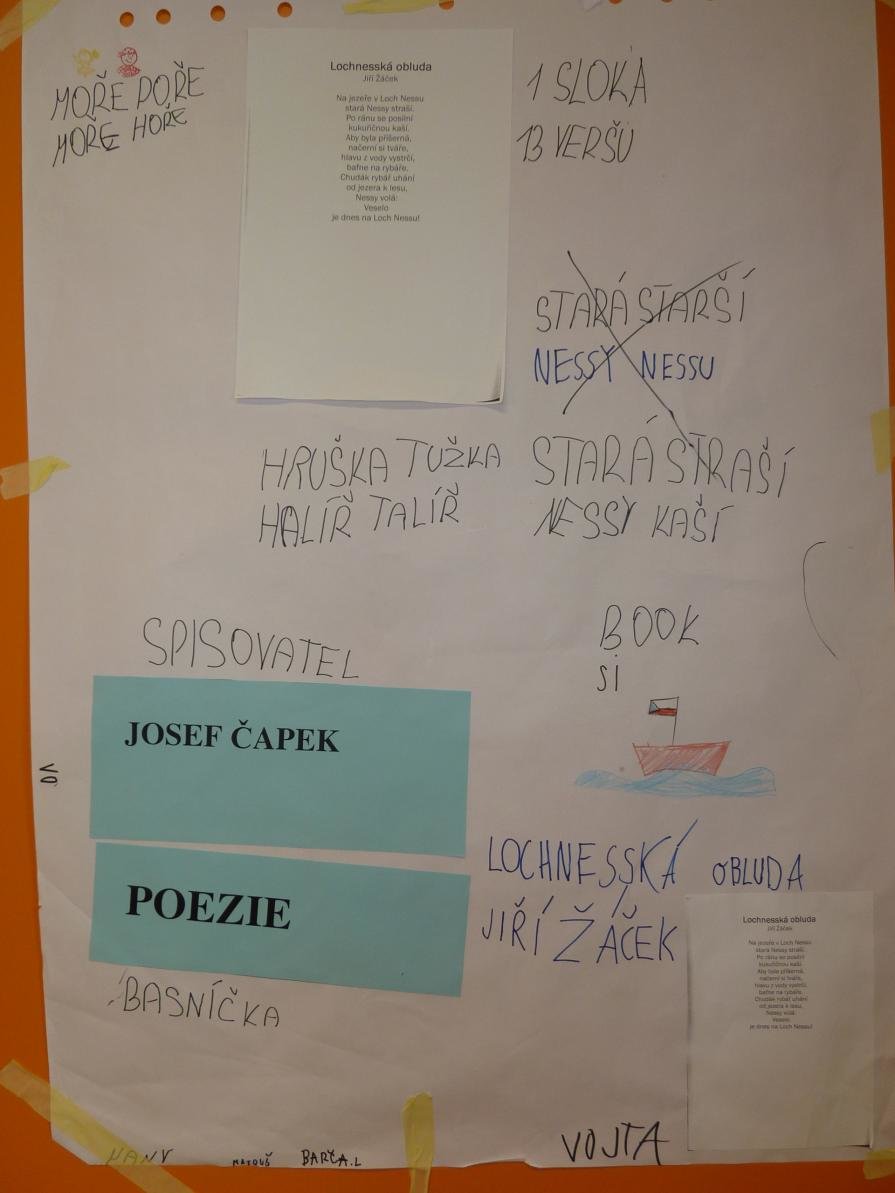 MOŘE POŘE
MOŘE HOŘE
Lochnesská obluda
Jiří Žáček
Na jezeře v Loch Nessu
stará Nessy straší.
Po ránu se posilní
kukuřičnou kaší.
Aby byla příšerná,
načerní si tváře,
hlavu z vody vystrčí,
bafne na rybáře.
Chudák rybář uhání
od jezera k lesu,
Nessy volá:
Veselo
je dnes na Loch Nessu!
1 SLOKA
13 VERŠU
STARÁ STARŠÍ
NESSY NESSU
HRUŠKA TUŽKA
HALÍŘ TALÍŘ
STARÁ STRAŠÍ
NESSY KAŠÍ
SPISOVATEL
JOSEF ČAPEK
POEZIE
BASNÍČKA
BOOK
si
LOCHNESSKÁ OBLUDA
JIŘÍ ŽÁČEK
Lochnesská obluda
Jiří Žáček
Na jezeře v Loch Nessu
stará Nessy straší.
Po ránu se posilní
kukuřičnou kaší.
Aby byla příšerná,
načerní si tváře,
hlavu z vody vystrčí,
bafne na rybáře.
Chudák rybář uhání
od jezera k lesu,
Nessy volá:
Veselo
je dnes na Loch Nessu!
MATOUŠ
BARČA.L
VOJTA